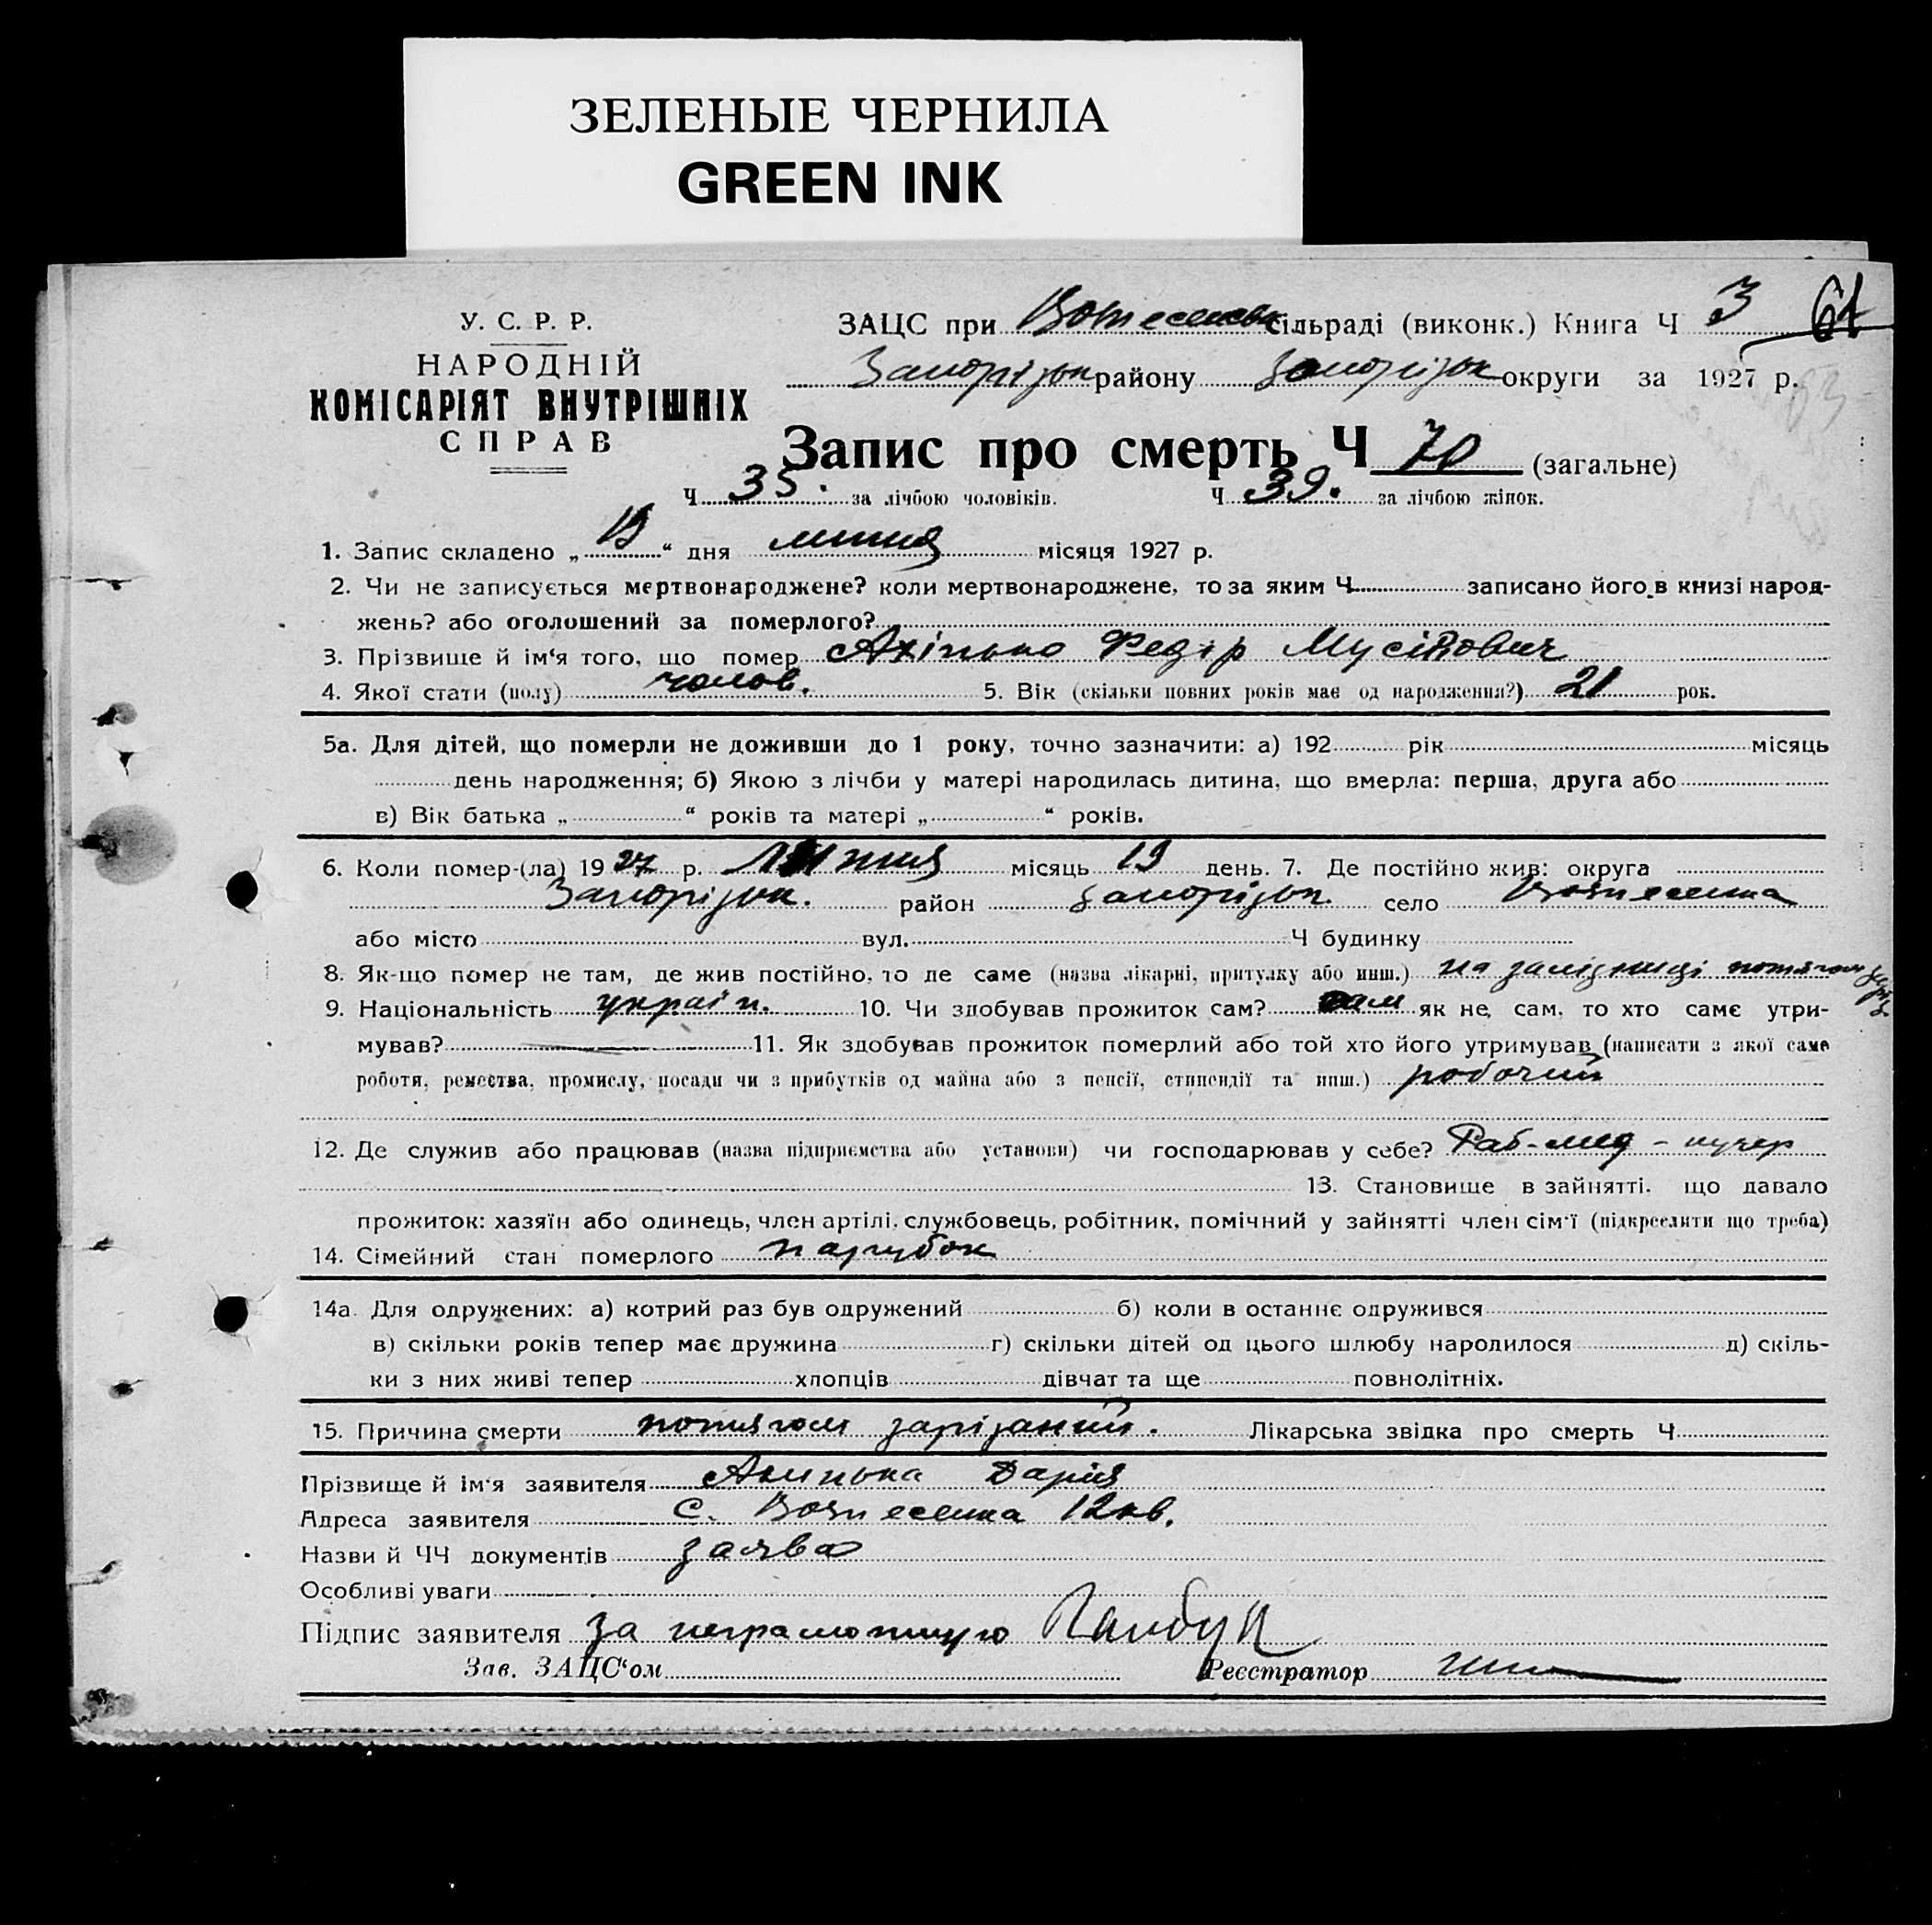 ЗЕЛЕНЫЕ ЧЕРНИЛА
GREEN INK
У. С. Р. Р.
НАРОДНІЙ
КОМІСАРІЯТ ВНУТРІШНІХ
СПРАВ
ЗАЦС при Вознесенськ сільраді (виконк.) Книга Ч 3 61
Запорізьк району Запорізьк округи за 1927 р.
Запис про смерть Ч 70 (загальне)
Ч 35. за лічбою чоловіків. Ч 39. за лічбою жінок.
1. Запис складено „19“ дня липня місяця 1927 р.
2. Чи не записується мертвонароджене? коли мертвонароджене, то за яким Ч записано його в книзі народ-
жень? або оголошений за померлого?
3. Прізвище й ім‘я того, що помер Ахінько Федір Мусійович
4. Якої стати (полу) чолов. 5. Вік (скільки повних років має од народження?) 21 рок.
5а. Для дітей, що померли не доживши до 1 року, точно зазначити: а) 192 рік місяць
день народження; б) Якою з лічби у матері народилась дитина, що вмерла: перша, друга або
в) Вік батька „ “ років та матері „ “ років.
6. Коли помер-(ла) 1927 р. липня місяць 19 день. 7. Де постійно жив: округа
Запорізьк. район Запорізьк. село Вознесенка
або місто вул. Ч будинку
8. Як-що помер не там, де жив постійно, то де саме (назва лікарні, притулку або инш.) на залізниці потягом
9. Національність україн. 10. Чи здобував прожиток сам? сам як не сам, то хто саме утри-
мував? 11. Як здобував прожиток померлий або той хто його утримував (написати з якої саме
роботя, ремества, промислу, посади чи з прибутків од майна або з пенсії, стипендії та инш.) робочий
12. Де служив або працював (назва підприємства або установи) чи господарював у себе? Раб-мед - кучер
13. Становище в зайнятті, що давало
прожиток: хазяїн або одинець, член артілі, службовець, робітник, помічний у зайнятті член сім‘ї (підкреслити що треба)
14. Сімейний стан померлого парубок
14а. Для одружених: а) котрий раз був одружений б) коли в останнє одружився
в) скільки років тепер має дружина г) скільки дітей од цього шлюбу народилося д) скіль-
ки з них живі тепер хлопців дівчат та ще повнолітніх.
15. Причина смерти потягом зарізаний. Лікарська звідка про смерть Ч
Прізвище й ім‘я заявителя Ахинька Дарія
Адреса заявителя С. Вознесенка 12 кв.
Назви й ЧЧ документів заява
Особливі уваги
Підпис заявителя за неграмотную
Зав. ЗАЦС‘ом Реєстратор